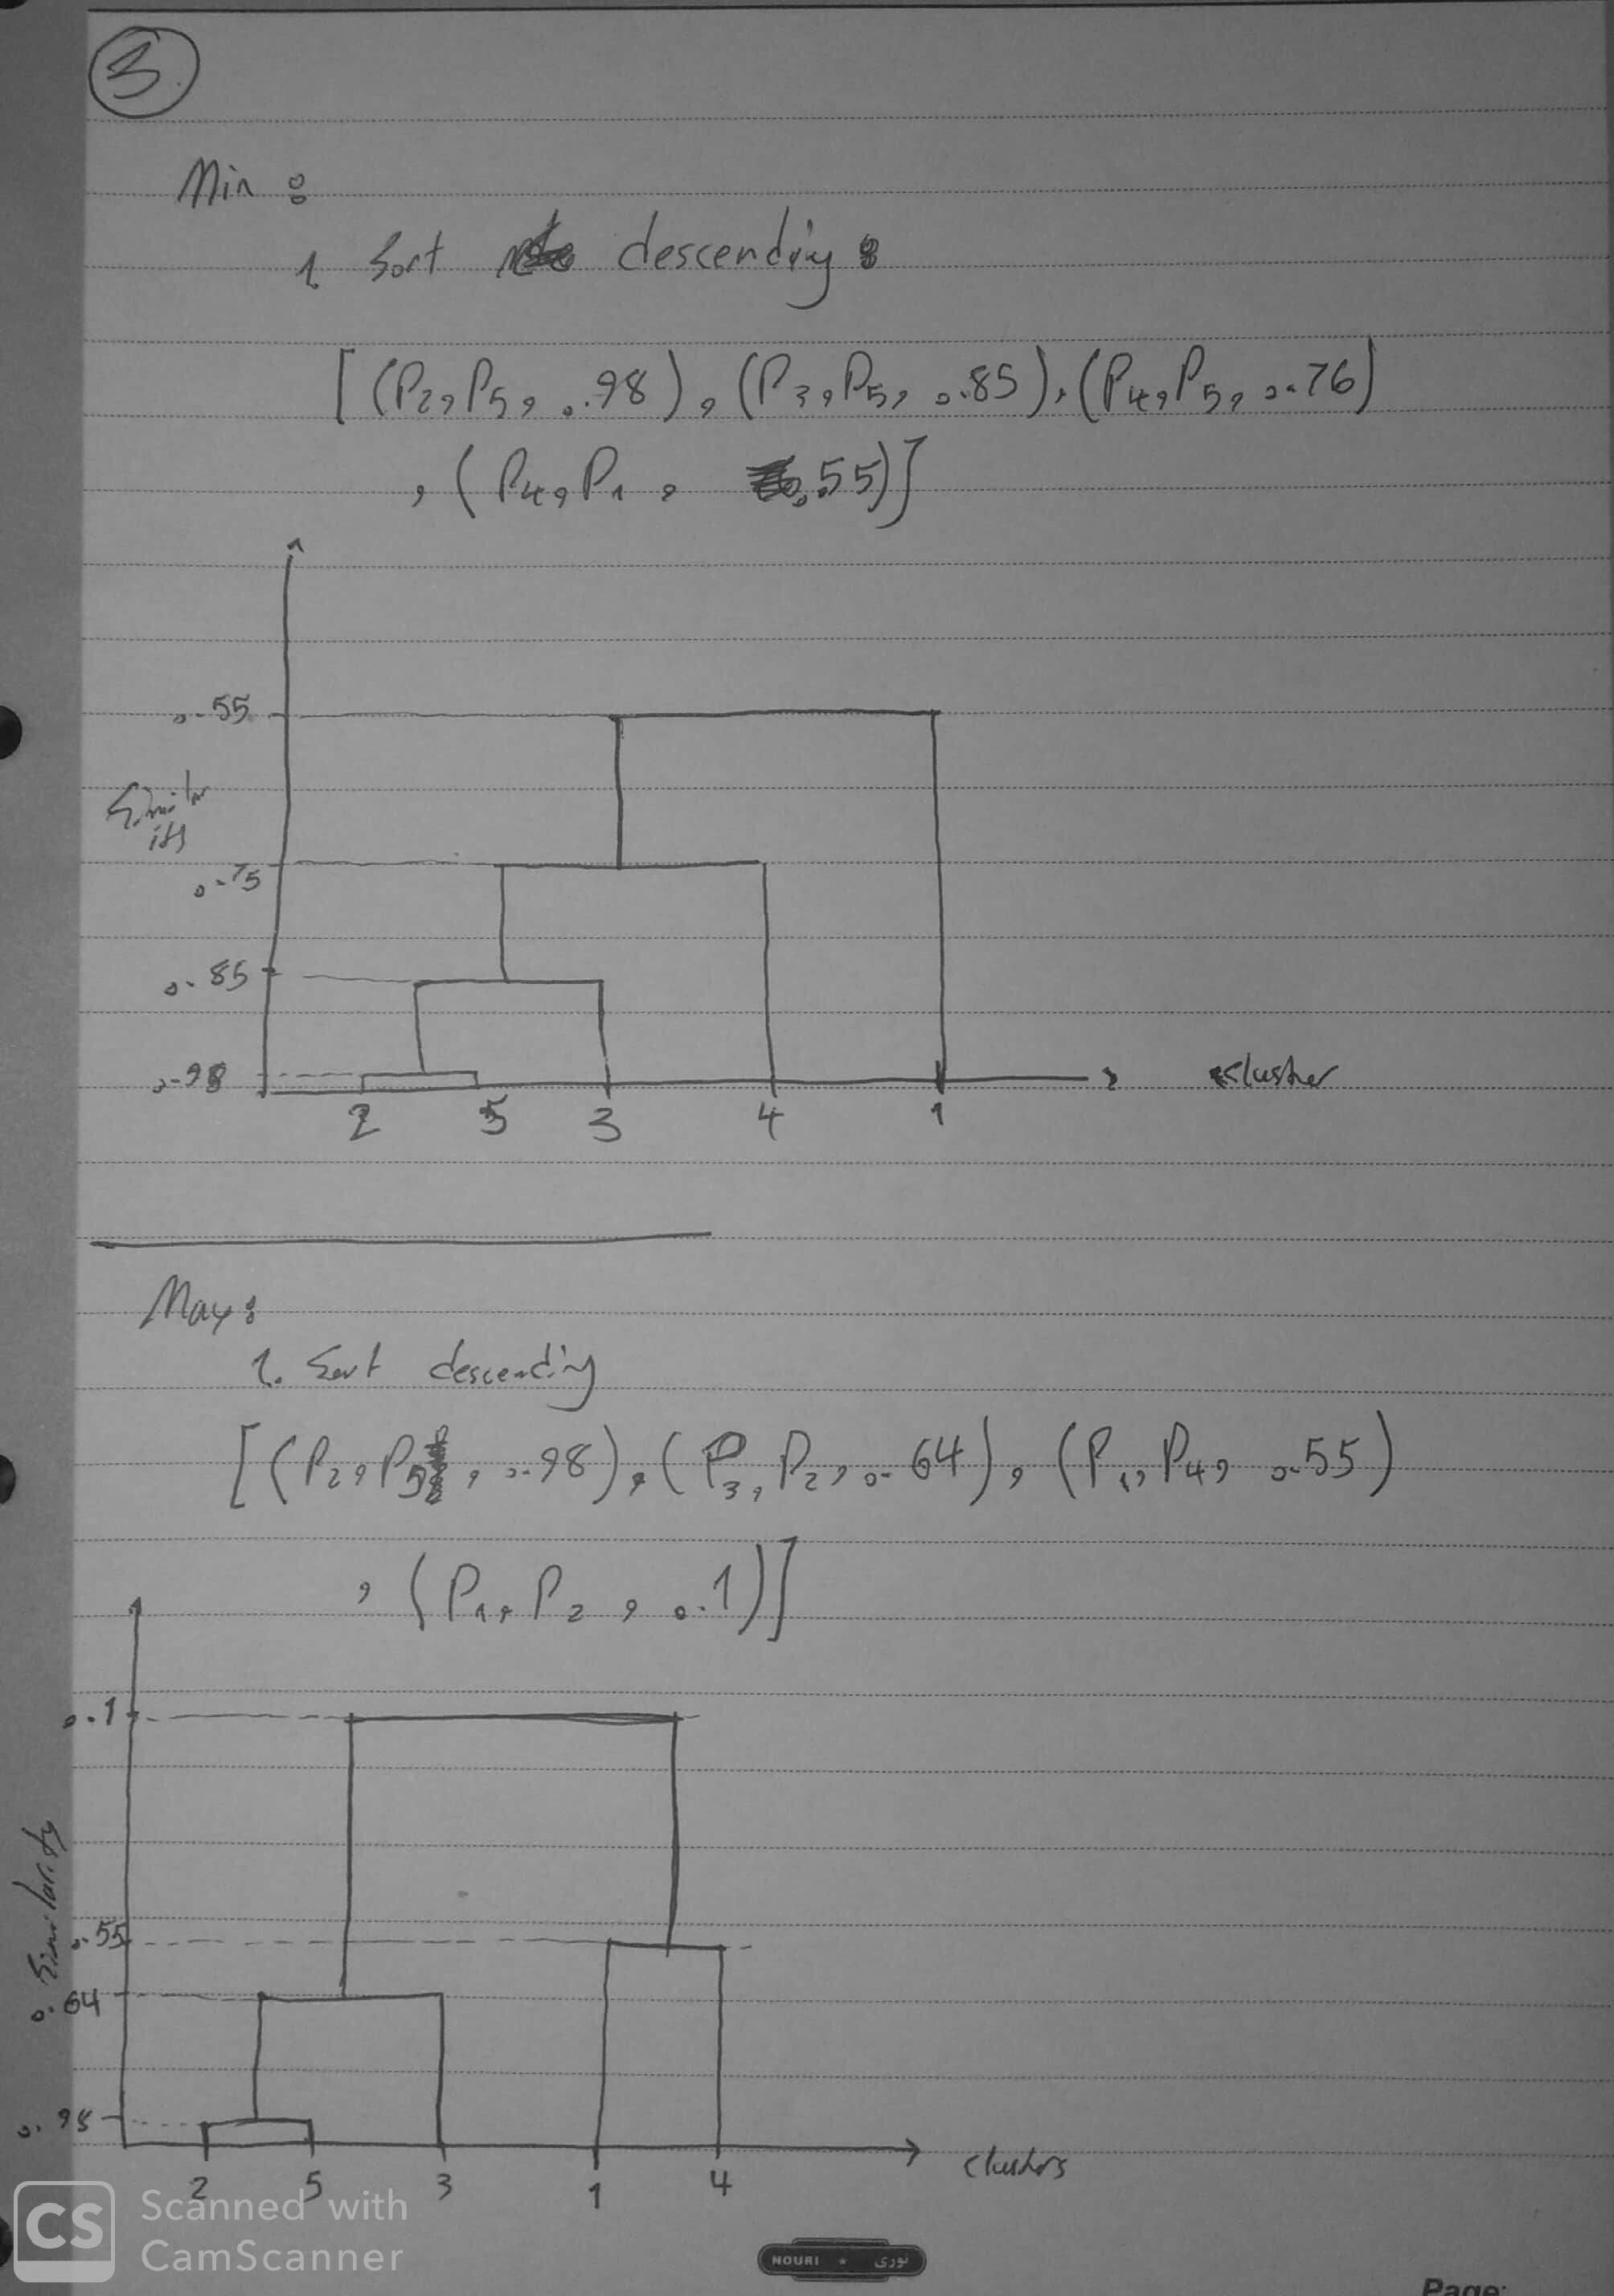 3
Min :
1. Sort descending :
[ (P2, P5, 0.98), (P3, P5, 0.85), (P4, P5, 0.76)
, (P4, P1, 0.55)]
0.55
Similar
ity
0.75
0.85
0.98
2 5 3 4 1
cluster
Max :
1. Sort descending
[(P2, P5, 0.98), (P3, P2, 0.64), (P1, P4, 0.55)
, (P1, P2, 0.1)]
0.1
Similarity
0.55
0.64
0.98
2 5 3 1 4
clusters
CS Scanned with
CamScanner
NOURI ★ نوری
Page: